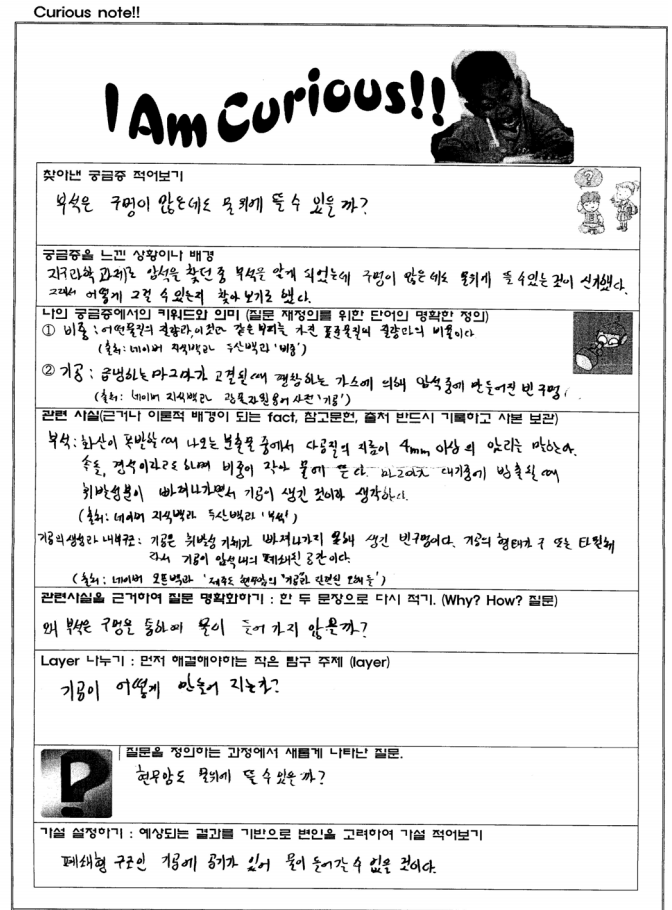 Curious note!!
I Am Curious!!
찾아낸 궁금증 적어보기
부석은 구멍이 많은데도 물 위에 뜰 수 있을까?
궁금증을 느낀 상황이나 배경
지구과학 과제로 암석을 찾던 중 부석을 알게 되었는데 구멍이 많은데도 물위에 뜰 수 있는 것이 신기했다.
그래서 어떻게 그럴 수 있는지 찾아보기로 했다.
나의 궁금증에서의 키워드와 의미 (질문 재정의를 위한 단어의 명확한 정의)
① 비중 : 어떤 물질의 질량과, 이것과 같은 부피를 가진 표준물질의 질량과의 비율이다
(출처: 네이버 지식백과 두산백과 '비중')
② 기공 : 급냉하는 마그마가 고결될 때 팽창하는 가스에 의해 암석 중에 만들어진 빈 구멍.
(출처: 네이버 지식백과 광물자원용어사전 '기공')
관련 사실(근거나 이론적 배경이 되는 fact, 참고문헌, 출처 반드시 기록하고 사본 보관)
부석 : 화산이 폭발할 때 나오는 분출물 중에서 다공질의 지름이 4mm 이상의 암괴를 말한다.
속돌, 경석이라고도 하며 비중이 작아 물에 뜬다. 마그마가 대기중에 방출될 때
휘발성분이 빠져나가면서 기공이 생긴 것이라 생각하다.
(출처: 네이버 지식백과 두산백과 '부석')
기공의 생성과 내부구조 : 기공은 휘발성 기체가 빠져나가지 못해 생긴 빈구멍이다. 기공의 형태가 구 또는 타원체
라서 기공이 암석내의 폐쇄된 공간이다.
(출처: 네이버 오픈백과 '제주도 현무암의 "기공"과 관련된 오해들')
관련사실을 근거하여 질문 명확화하기 : 한 두 문장으로 다시 적기. (Why? How? 질문)
왜 부석은 구멍을 통하여 물이 들어가지 않을까?
Layer 나누기 : 먼저 해결해야하는 작은 탐구 주제 (layer)
기공이 어떻게 만들어 지는가?
질문을 정의하는 과정에서 새롭게 나타난 질문.
현무암도 물위에 뜰 수 있을까?
가설 설정하기 : 예상되는 결과를 기반으로 변인을 고려하여 가설 적어보기
폐쇄형 구조인 기공에 공기가 있어 물이 들어갈 수 없을 것이다.